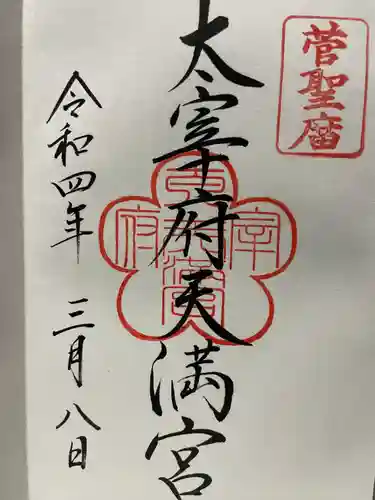 菅聖廟
太宰府天満宮
令和四年 三月八日